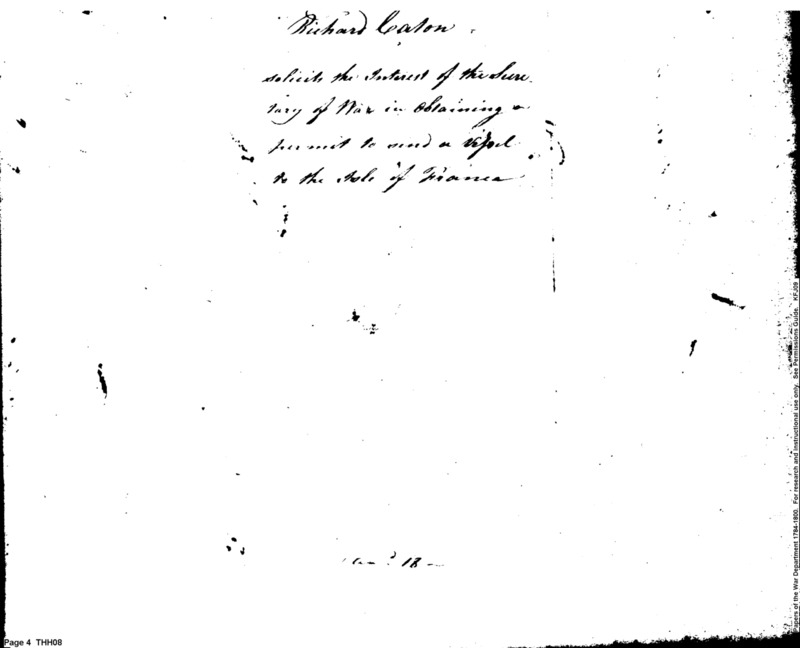 Richard Caton
solicits the Interest of the Secre
tary of War in obtaining a
permit to send a Vessel
to the Isle of France
18
Page 4 THH08
Papers of the War Department 1784-1800. For research and instructional use only. See Permissions Guide. KFJ09